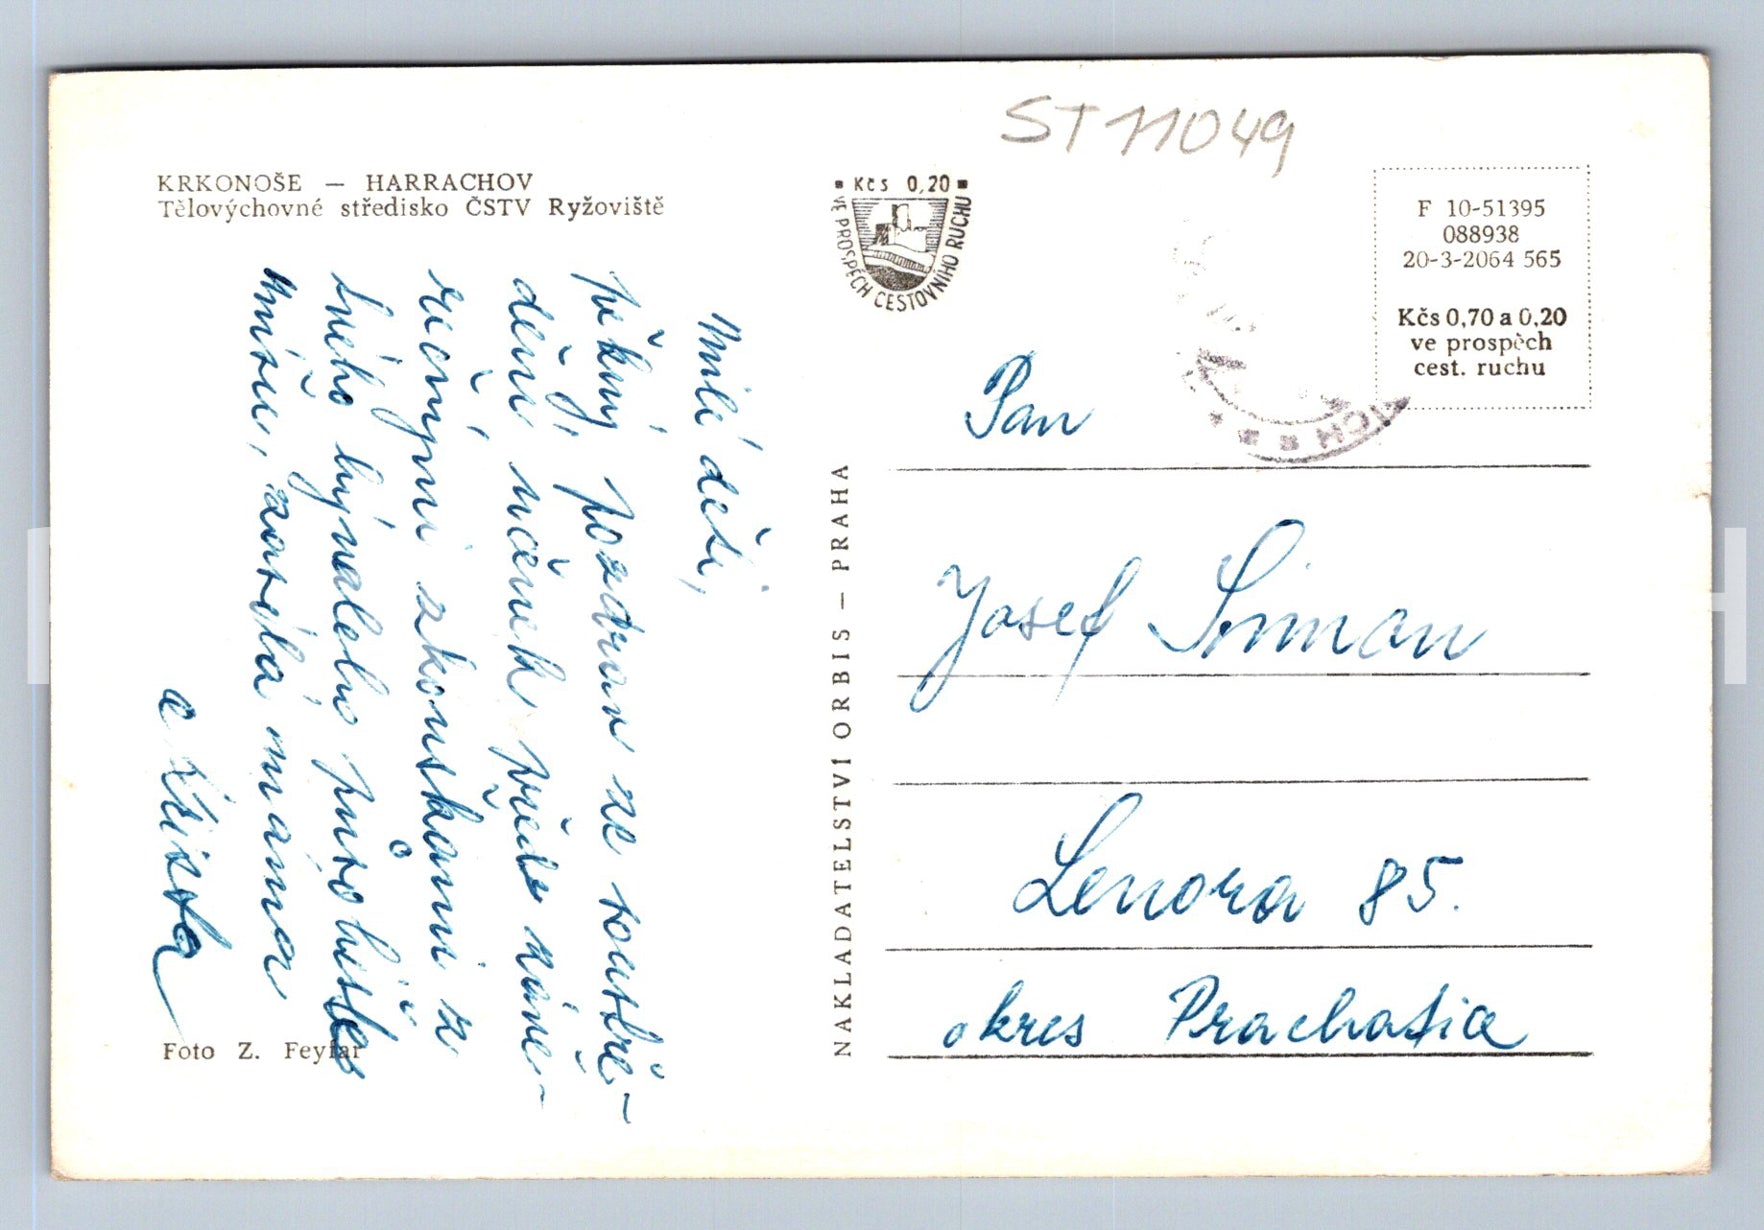 ST 11049
KRKONOŠE — HARRACHOV
Tělovýchovné středisko ČSTV Ryžoviště
Kčs 0,20
VE PROSPĚCH CESTOVNÍHO RUCHU
F 10-51395
088938
20-3-2064 565
Kčs 0,70 a 0,20
ve prospěch
cest. ruchu
Milé děti,
pěkný pozdrav ze soustře-
dění učenek před závě-
rečnými zkouškami z
lného působiště
místu, zasílá máma
a
NAKLADATELSTVÍ ORBIS — PRAHA
Pan
Josef Šiman
Lenora 85.
okres Prachatice
Foto Z. Feyfar